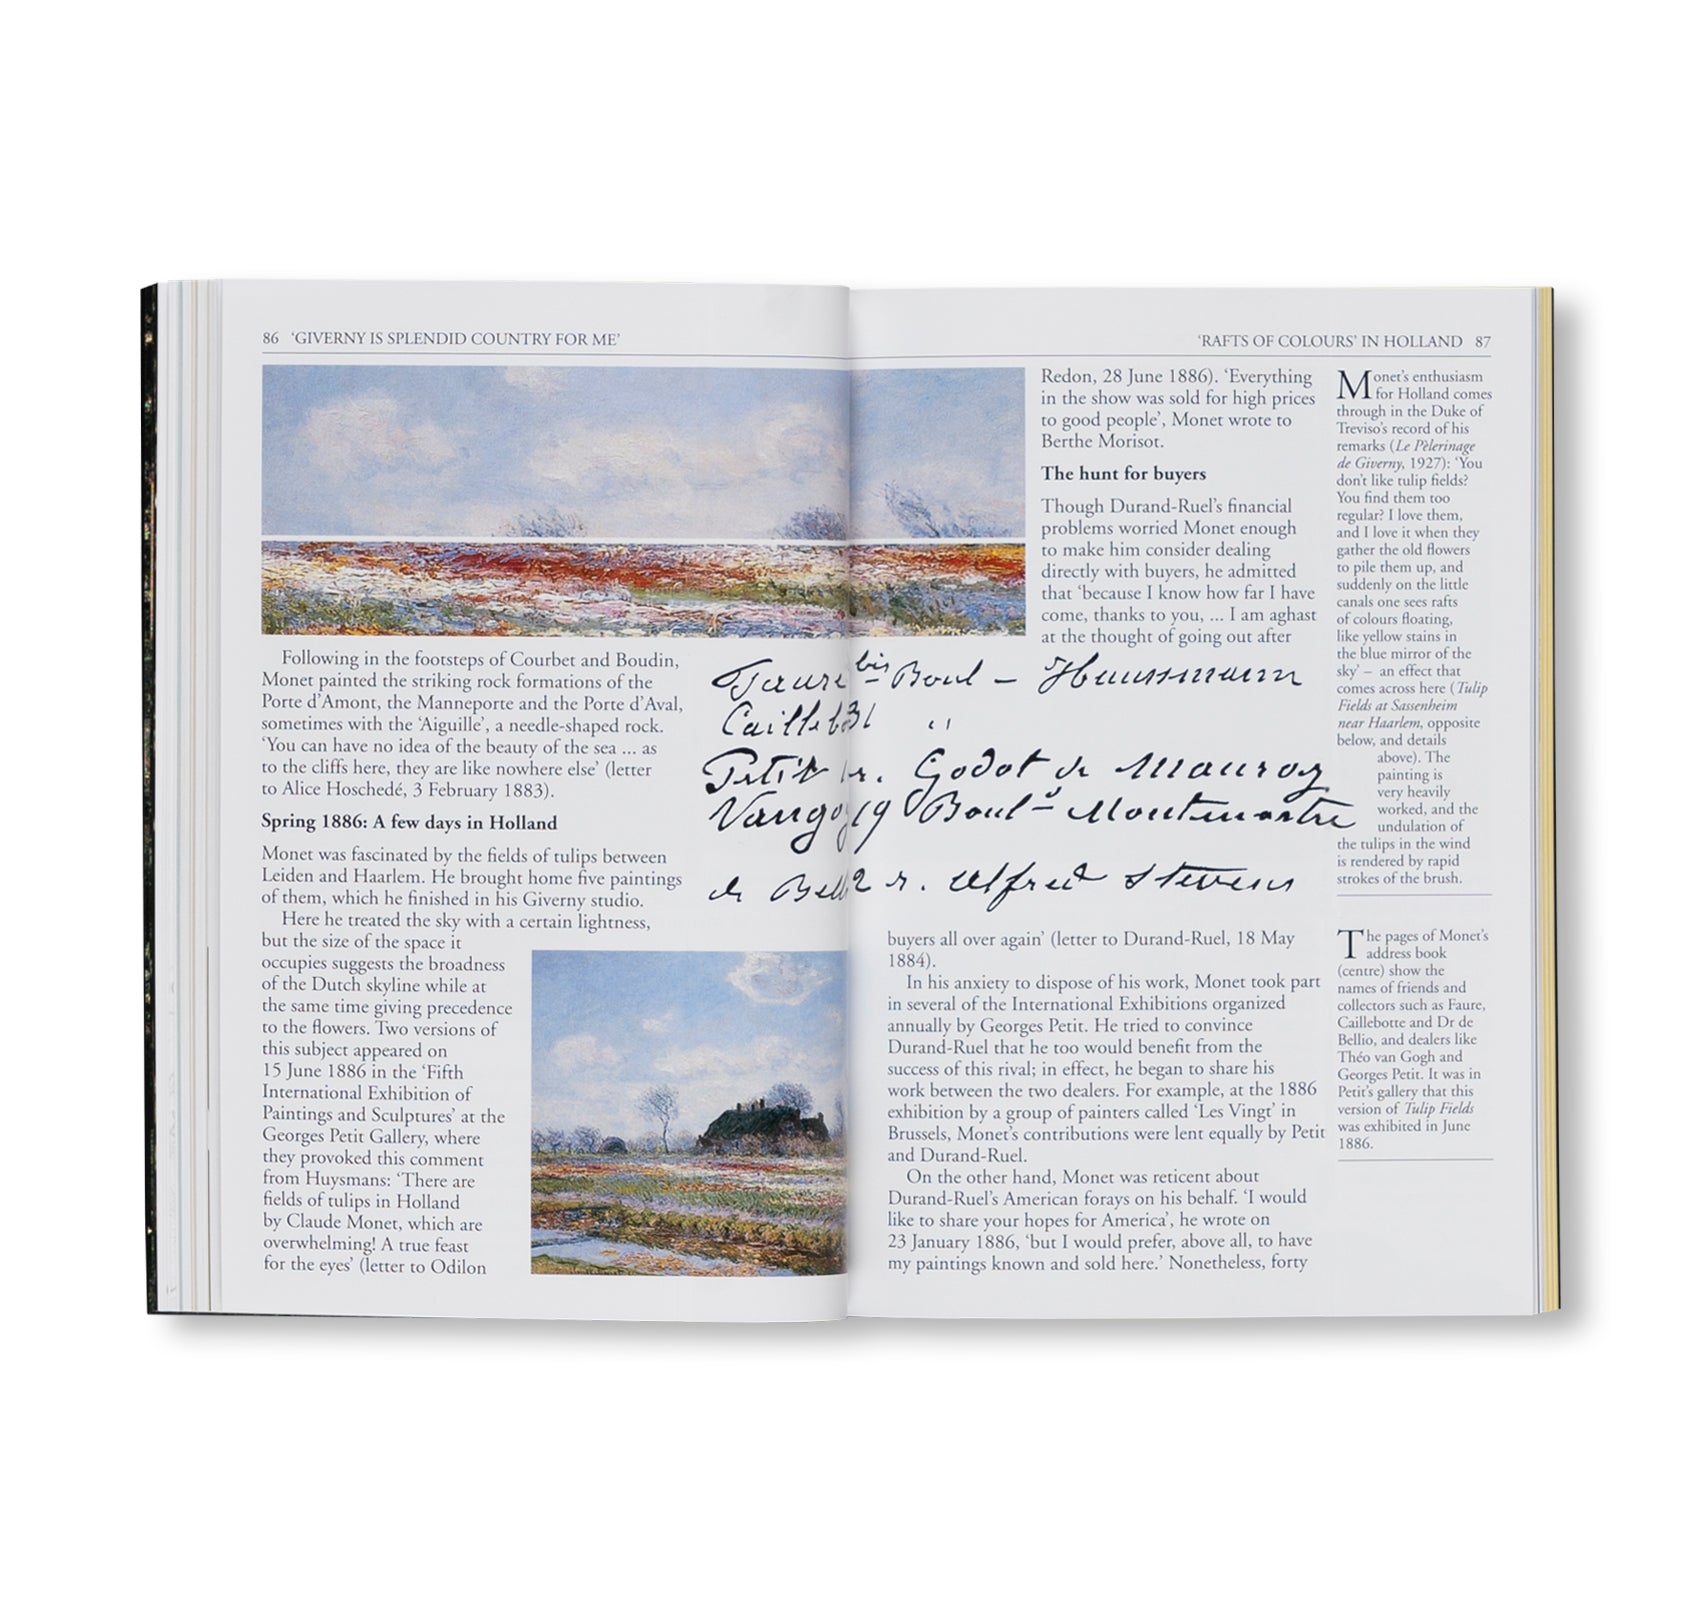 86 ‘GIVERNY IS SPLENDID COUNTRY FOR ME’
Following in the footsteps of Courbet and Boudin,
Monet painted the striking rock formations of the
Porte d’Amont, the Manneporte and the Porte d’Aval,
sometimes with the ‘Aiguille’, a needle-shaped rock.
‘You can have no idea of the beauty of the sea ... as
to the cliffs here, they are like nowhere else’ (letter
to Alice Hoschedé, 3 February 1883).
Spring 1886: A few days in Holland
Monet was fascinated by the fields of tulips between
Leiden and Haarlem. He brought home five paintings
of them, which he finished in his Giverny studio.
Here he treated the sky with a certain lightness,
but the size of the space it
occupies suggests the broadness
of the Dutch skyline while at
the same time giving precedence
to the flowers. Two versions of
this subject appeared on
15 June 1886 in the ‘Fifth
International Exhibition of
Paintings and Sculptures’ at the
Georges Petit Gallery, where
they provoked this comment
from Huysmans: ‘There are
fields of tulips in Holland
by Claude Monet, which are
overwhelming! A true feast
for the eyes’ (letter to Odilon
Faure bis Boul – Haussmann
31 "
Petit r. Godot de Mauroy
19 Boul – Montmartre
de 2 r. Alfred Stevens
‘RAFTS OF COLOURS’ IN HOLLAND 87
Redon, 28 June 1886). ‘Everything
in the show was sold for high prices
to good people’, Monet wrote to
Berthe Morisot.
The hunt for buyers
Though Durand-Ruel’s financial
problems worried Monet enough
to make him consider dealing
directly with buyers, he admitted
that ‘because I know how far I have
come, thanks to you, ... I am aghast
at the thought of going out after
buyers all over again’ (letter to Durand-Ruel, 18 May
1884).
In his anxiety to dispose of his work, Monet took part
in several of the International Exhibitions organized
annually by Georges Petit. He tried to convince
Durand-Ruel that he too would benefit from the
success of this rival; in effect, he began to share his
work between the two dealers. For example, at the 1886
exhibition by a group of painters called ‘Les Vingt’ in
Brussels, Monet’s contributions were lent equally by Petit
and Durand-Ruel.
On the other hand, Monet was reticent about
Durand-Ruel’s American forays on his behalf. ‘I would
like to share your hopes for America’, he wrote on
23 January 1886, ‘but I would prefer, above all, to have
my paintings known and sold here.’ Nonetheless, forty
Monet’s enthusiasm
for Holland comes
through in the Duke of
Treviso’s record of his
remarks (Le Pèlerinage
de Giverny, 1927): ‘You
don’t like tulip fields?
You find them too
regular? I love them,
and I love it when they
gather the old flowers
to pile them up, and
suddenly on the little
canals one sees rafts
of colours floating,
like yellow stains in
the blue mirror of the
sky’ – an effect that
comes across here (Tulip
Fields at Sassenheim
near Haarlem, opposite
below, and details
above). The
painting is
very heavily
worked, and the
undulation of
the tulips in the wind
is rendered by rapid
strokes of the brush.
The pages of Monet’s
address book
(centre) show the
names of friends and
collectors such as Faure,
Caillebotte and Dr de
Bellio, and dealers like
Théo van Gogh and
Georges Petit. It was in
Petit’s gallery that this
version of Tulip Fields
was exhibited in June
1886.